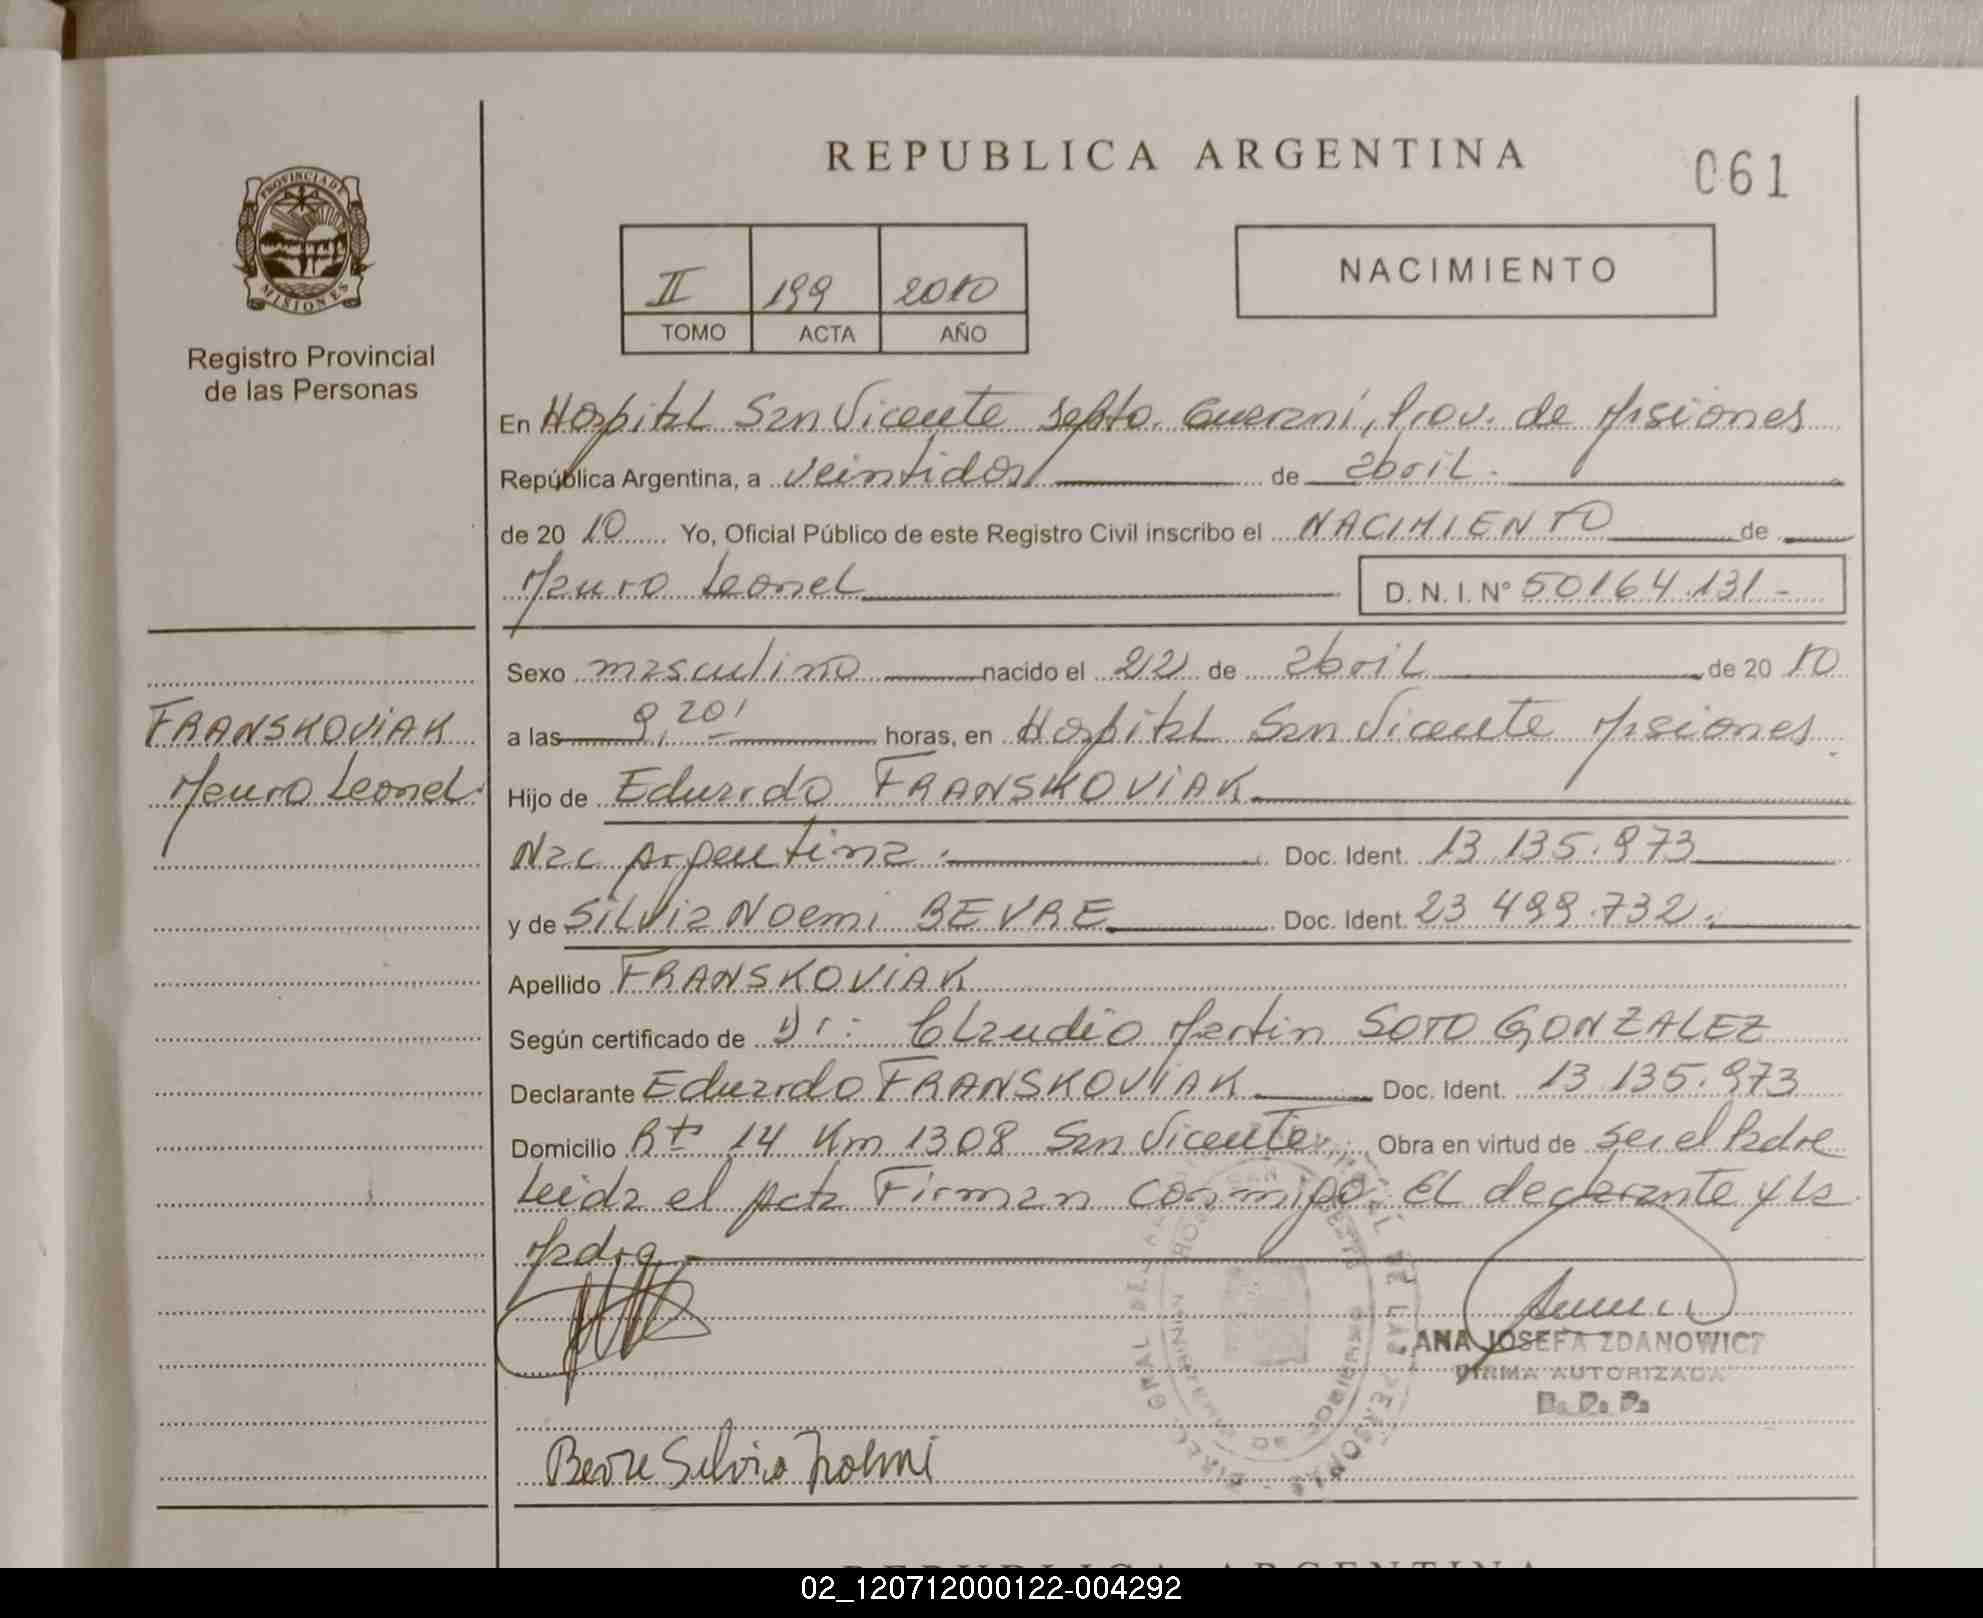 REPUBLICA ARGENTINA
061
PROVINCIA DE
MISIONES
Registro Provincial
de las Personas
II 199 2010
TOMO ACTA AÑO
NACIMIENTO
En Hospital San Vicente Depto. Guarani, Prov. de Misiones
República Argentina, a veintidos de abril.
de 20 10 Yo, Oficial Público de este Registro Civil inscribo el NACIMIENTO de
Mauro Leonel D. N. I. N° 50164.131-
Sexo masculino nacido el 22 de abril de 20 10
FRANSKOVIAK
Mauro Leonel.
a las 9,20' horas, en Hospital San Vicente Misiones.
Hijo de Eduardo FRANSKOVIAK
Nac Argentina. Doc. Ident. 13.135.973
y de Silvia Noemi BEVRE Doc. Ident. 23 499.732.
Apellido FRANSKOVIAK
Según certificado de Dr: Claudio Martin SOTO GONZALEZ
Declarante Eduardo FRANSKOVIAK Doc. Ident. 13.135.973
Domicilio Rta 14 Km 1308 San Vicente. Obra en virtud de ser el Padre
Leida el Acta Firman conmigo El declarante y la
Madre
ANA JOSEFA ZDANOWICZ
FIRMA AUTORIZADA
Bevre Silvia Nohmi
REPUBLICA ARGENTINA
02_120712000122-004292